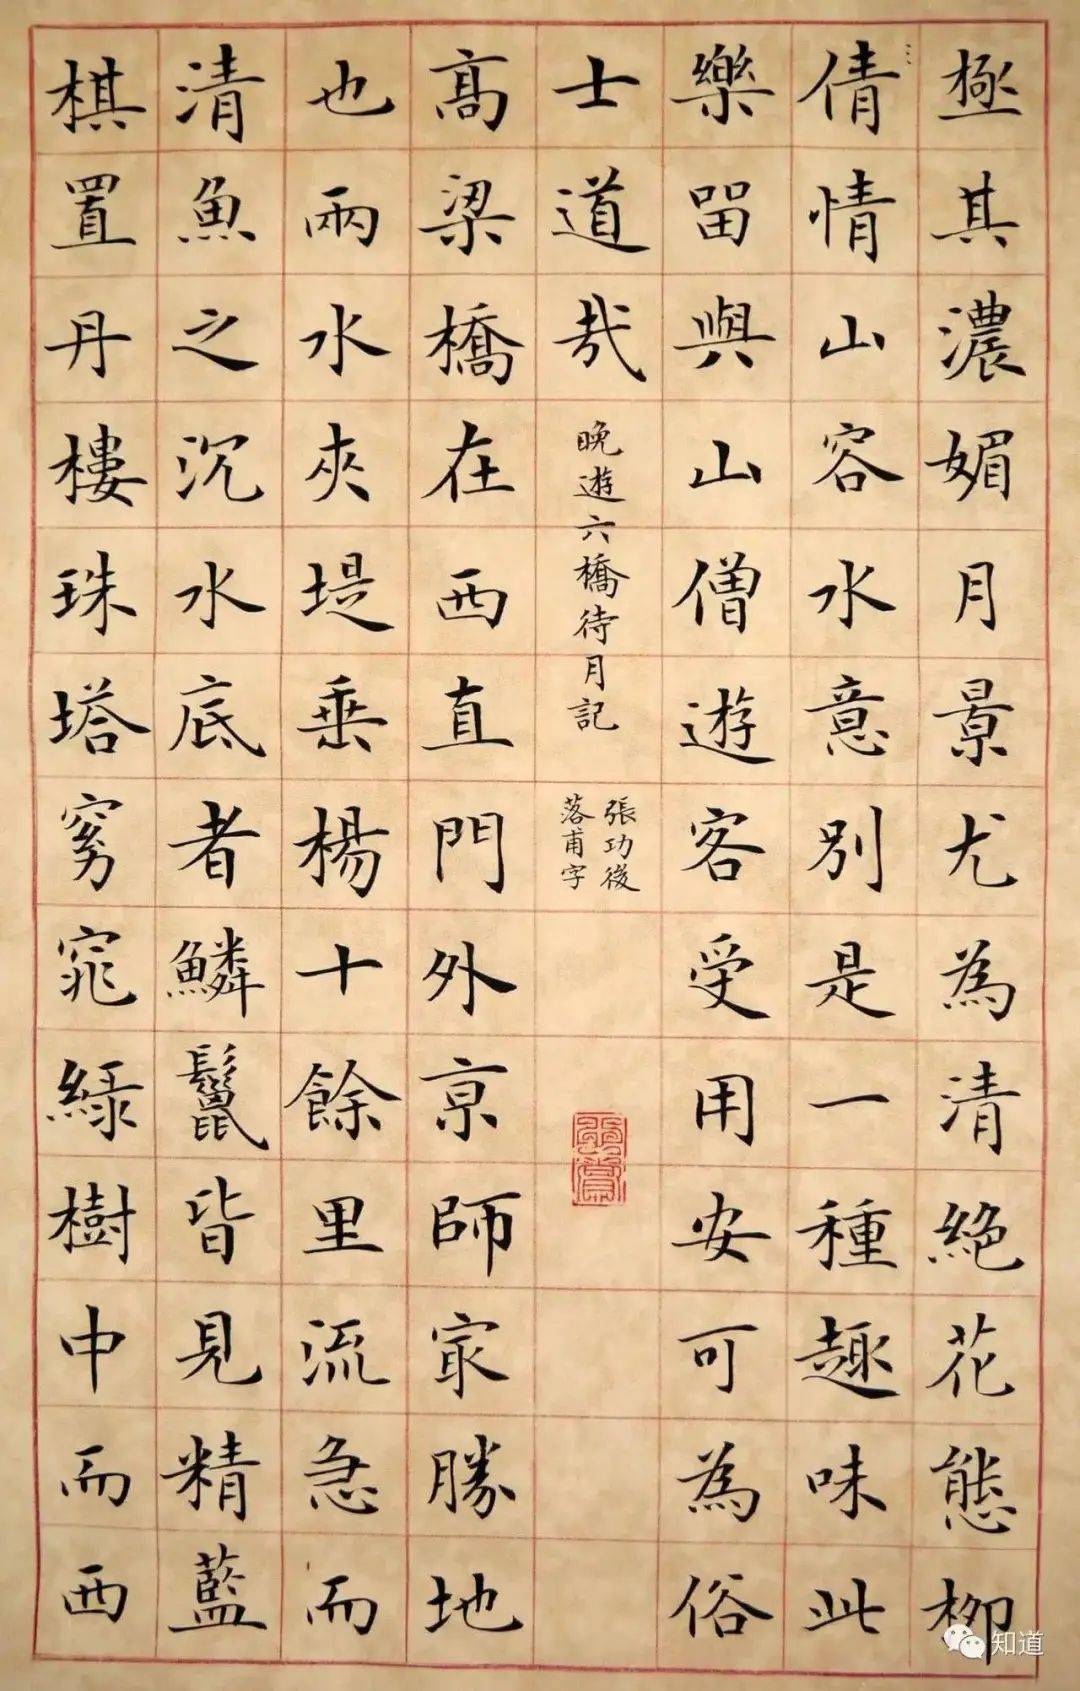 極其濃媚月景尤為清絶花態柳
倩情山容水意別是一種趣味此
樂留與山僧遊客受用安可為俗
士道哉
晚遊六橋待月記
張功後
落甫字
高梁橋在西直門外京師㝡勝地
也兩水夾堤垂楊十餘里流急而
清魚之沉水底者鱗鬣皆見精藍
棋置丹樓珠塔窈窕緑樹中而西
知道